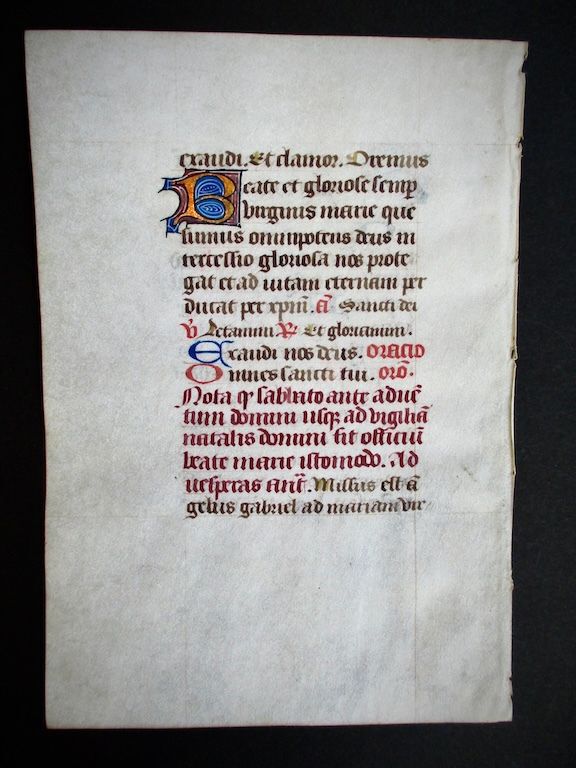 exaudi. Et clamor. Oremus
Beate et gloriose semp
virginis marie que
sumus omnipotens deus in
tercessio gloriosa nos prote
gat et ad vitam eternam per
ducat per xpm̅. an̅ Sancti dei
v̅ Letamini R̅ Et gloriamini.
Exaudi nos deus. oracio
Omnes sancti tui. oro̅.
Nota q sabbato ante adue̅
tum domini usq ad vigilia̅
natalis domini fit officiu̅
beate marie istomodo. Ad
vesperas ant̅. Missus est a̅
gelus gabriel ad mariam vir